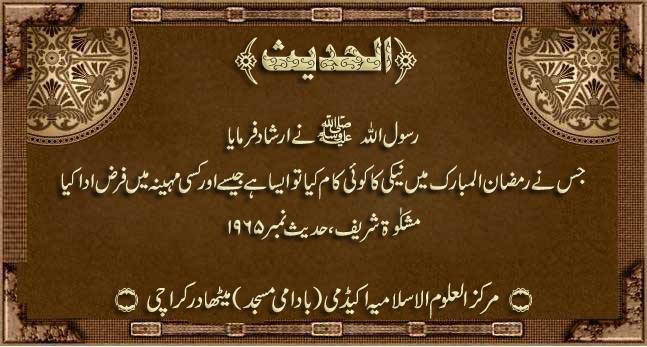 ﴿الحدیث﴾
رسول اللہ ﷺ نے ارشاد فرمایا
جس نے رمضان المبارک میں نیکی کا کوئی کام کیا تو ایسا ہے جیسے اور کسی مہینہ میں فرض ادا کیا
مشکوٰۃ شریف، حدیث نمبر ۱۹۶۵
مرکز العلوم الاسلامیہ اکیڈمی (بادامی مسجد) میٹھادر کراچی